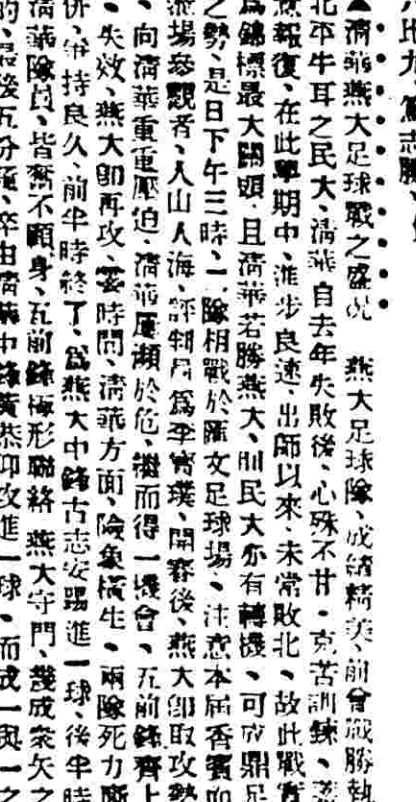 ▲清華燕大足球戰之盛况　燕大足球隊、成績精美、前曾戰勝執
北平牛耳之民大、清華自去年失敗後、心殊不甘・克苦訓鍊、
報復、在此單期中、進步良速、出師以來、未常敗北、故此戰實
爲錦標最大關頭、且清華若勝燕大、則民大亦有轉機、可成鼎足
之勢、是日下午三時、二隊相戰於匯文足球場、注意本屆香賓
場參觀者、人山人海、評判員爲李寶璞、開賽後、燕大卽取攻勢
、向清華重重壓迫、清華屢瀕於危、繼而得一機會、五前鋒齊上
、失效、燕大卽再攻、霎時間、清華方面、險象橫生、兩隊死力
併、爭持良久、前半時終了、爲燕大中鋒古志安踢進一球、後半時
清華隊員、皆奮不顧身、五前鋒極形聯絡　燕大守門、幾成衆矢之
的、最後五分鐘、卒由清華中鋒黃恭仰攻進一球、而成一與一之